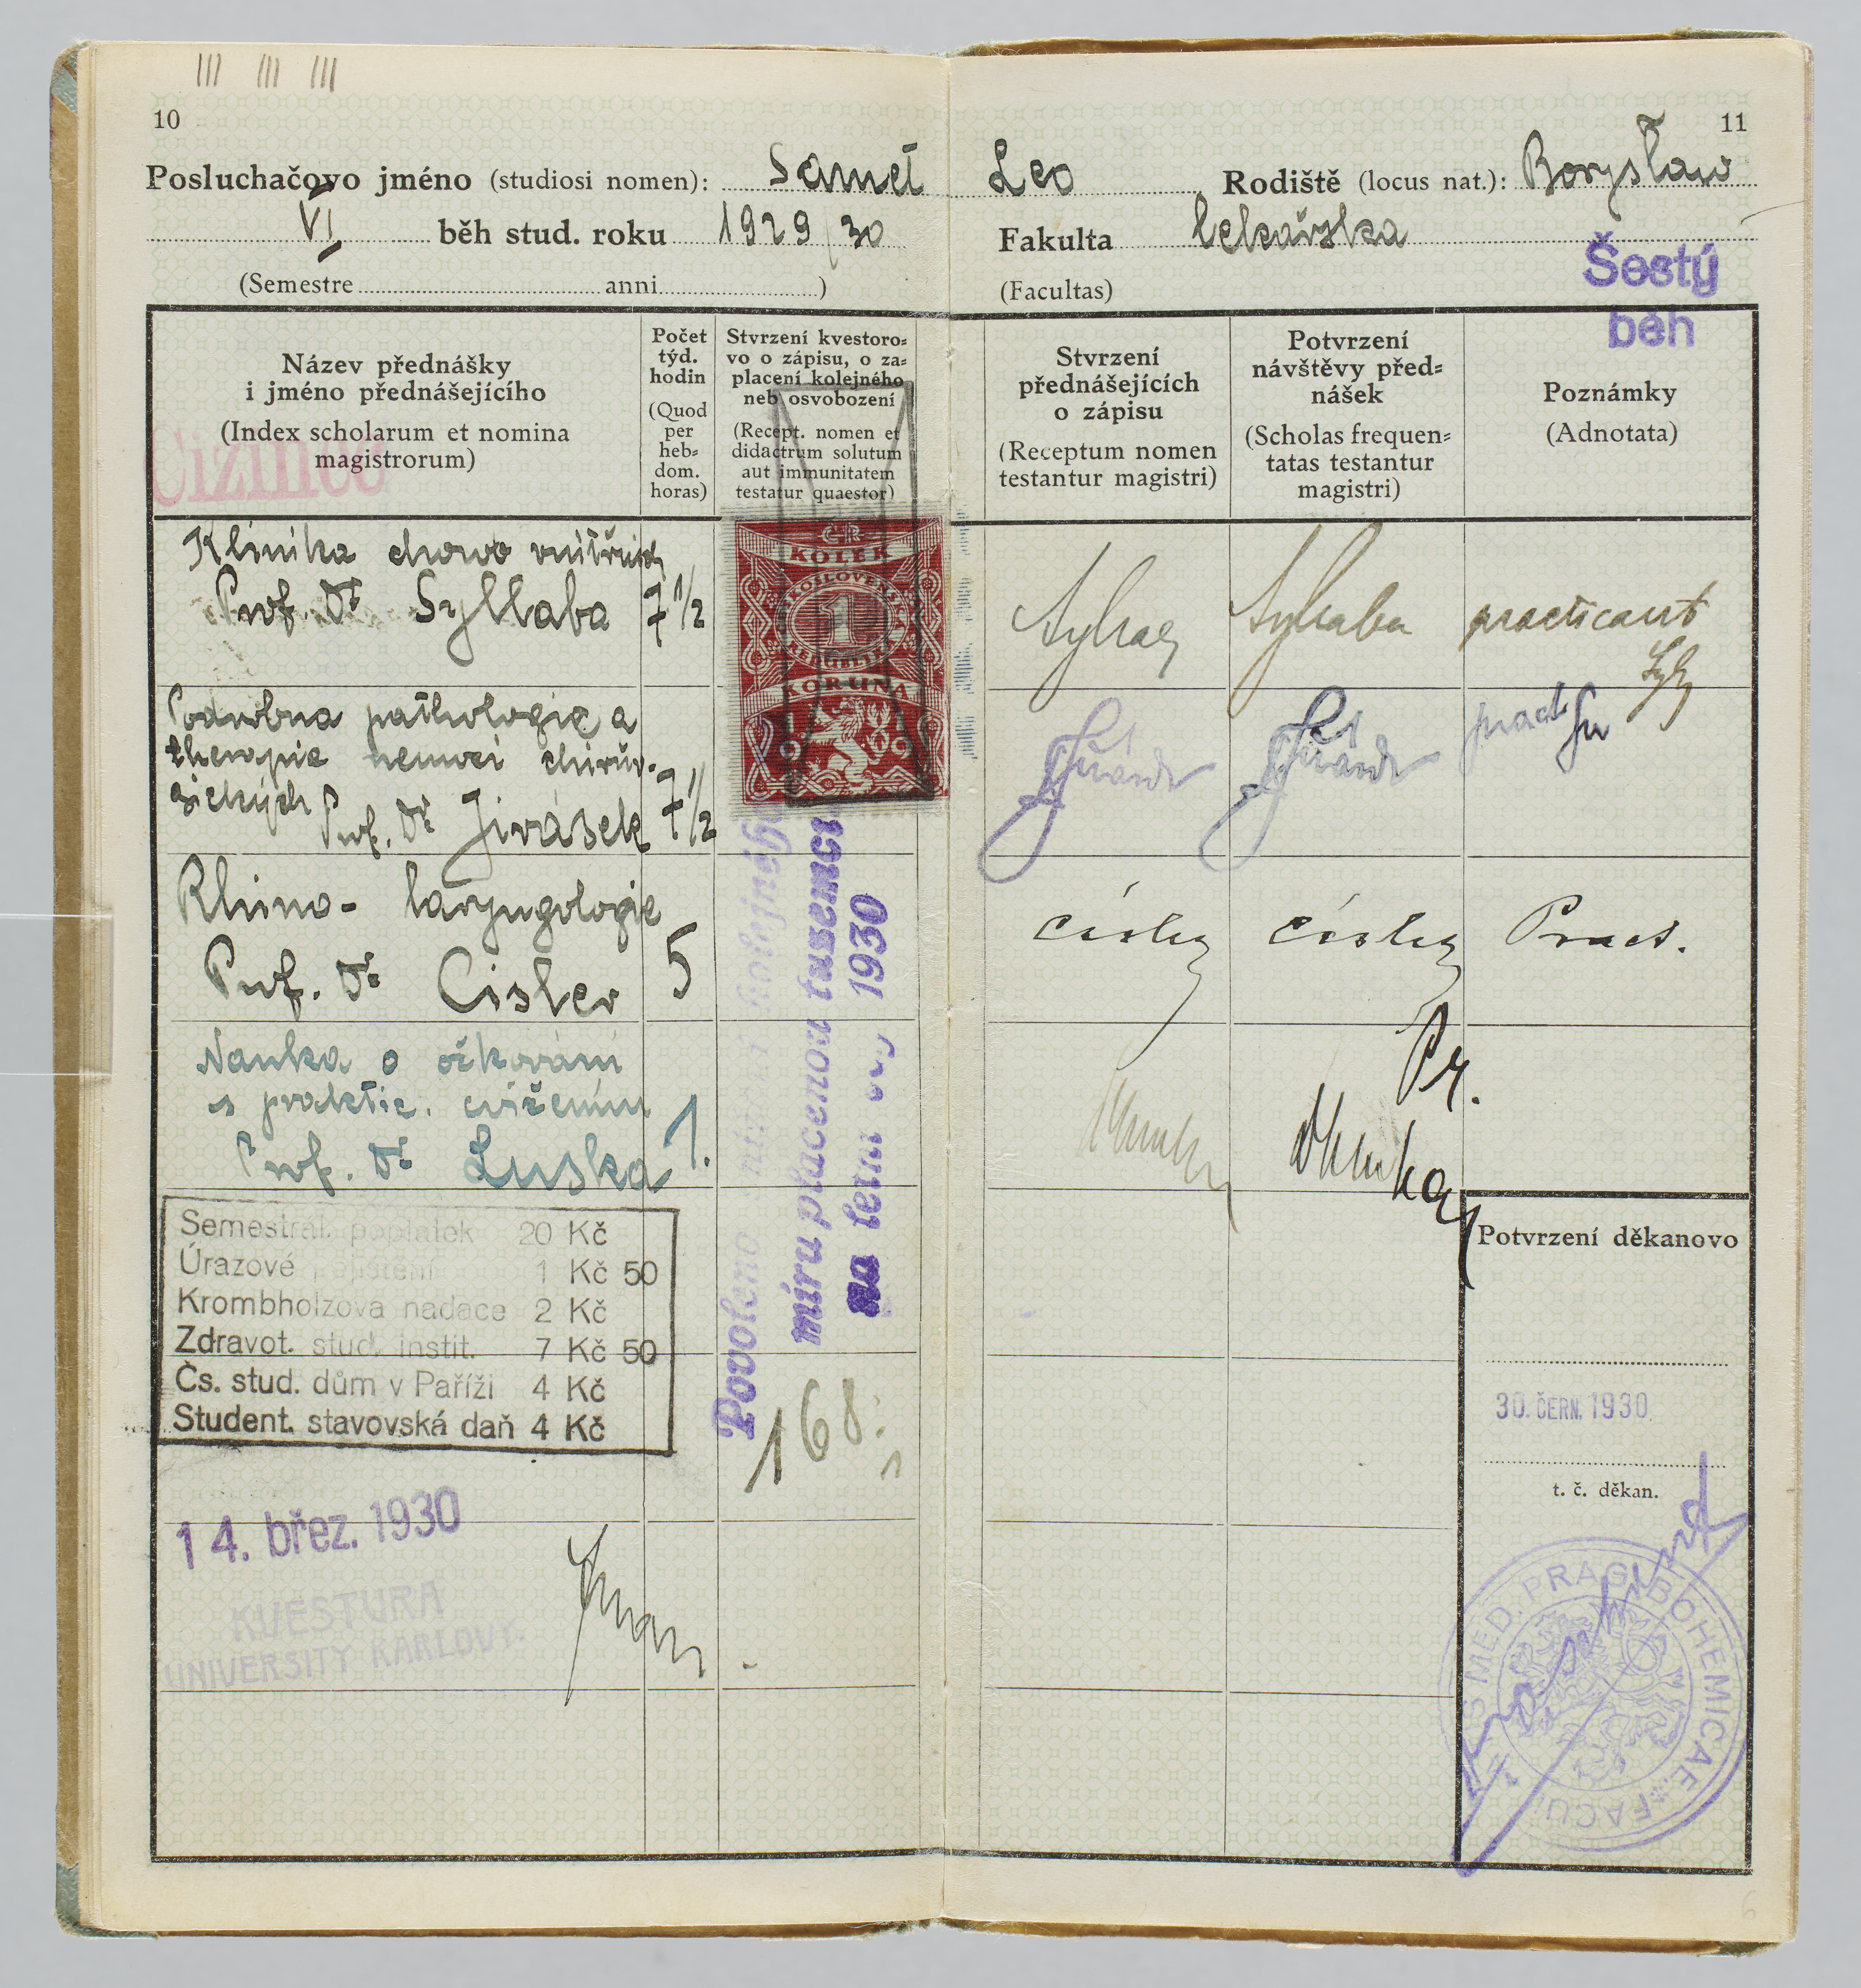 10
Posluchačovo jméno (studiosi nomen): Samet Leo
VI běh stud. roku 1929/30
(Semestre anni )
11
Rodiště (locus nat.): Borysław
Fakulta lekařska
(Facultas)
Šestý
běh
Název přednášky
i jméno přednášejícího
(Index scholarum et nomina
magistrorum)
Cizinec
Počet
týd.
hodin
(Quod
per
heb=
dom.
horas)
Stvrzení kvestoro=
vo o zápisu, o za=
placení kolejného
neb osvobození
(Recept. nomen et
didactrum solutum
aut immunitatem
testatur quaestor)
Stvrzení
přednášejících
o zápisu
(Receptum nomen
testantur magistri)
Potvrzení
návštěvy před=
nášek
(Scholas frequen=
tatas testantur
magistri)
Poznámky
(Adnotata)
Klinika chorob vnitřních
Prof. Dr Syllaba 7 1/2
Syllaba
practicant
Podrobna pathologie a
therapie nemocí chirur-
gických Prof. Dr Jirásek 7 1/2
pract
Rhino- laryngologie
Prof. Dr Cisler 5
Císler Císler Pract.
Nauka o očkování
s praktic. cvičeními
Prof. Dr Luska 1.
Pr.
ČSR
KOLEK
ČESKOSLOVENSKÁ
1
REPUBLIKA
KORUNA
Povoleno kolejného
míru placenou tuzemci
na letní 1930
168.
Semestrál. poplatek 20 Kč
Úrazové pojištění 1 Kč 50
Krombholzova nadace 2 Kč
Zdravot. stud. instit. 7 Kč 50
Čs. stud. dům v Paříži 4 Kč
Student. stavovská daň 4 Kč
14. břez. 1930
KVESTURA
UNIVERSITY KARLOVY.
Potvrzení děkanovo
30. ČERN. 1930
t. č. děkan.
MED. PRAG. BOHEMICAE